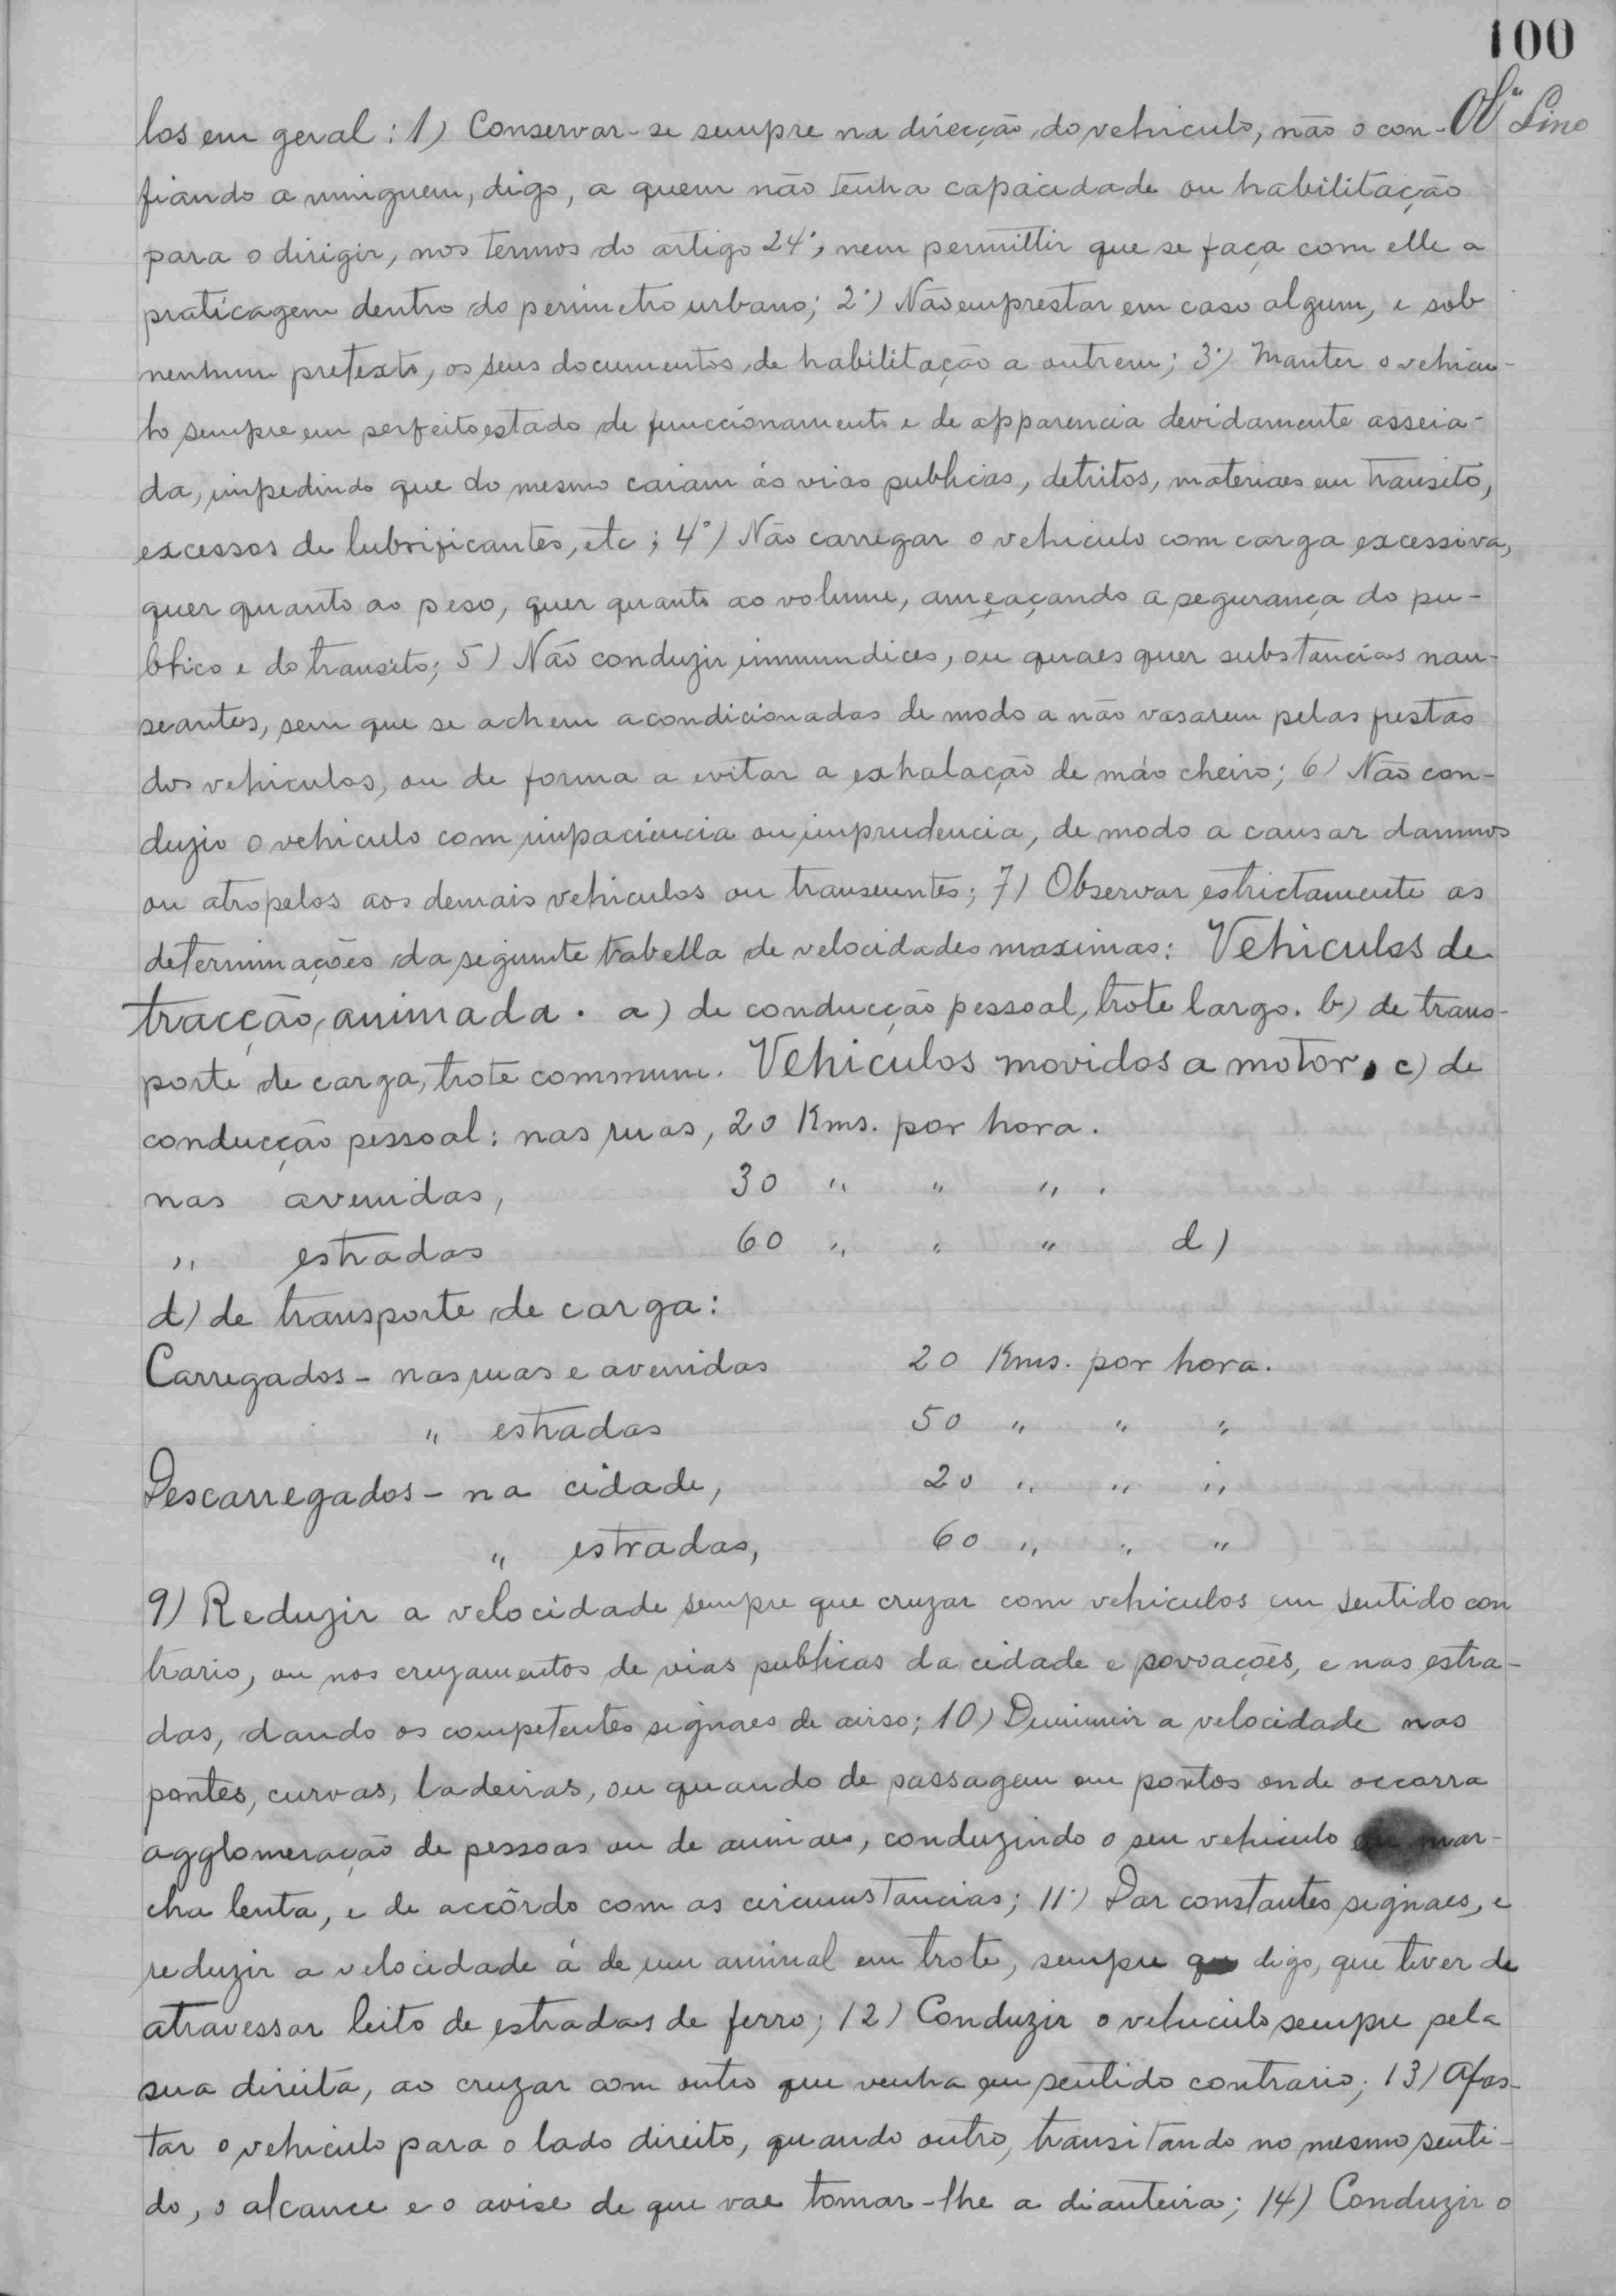 100
Lino
los em geral: 1) Conservar-se sempre na direcção do vehiculo, não o con-
fiando a ninguem, digo, a quem não tenha capacidade ou habilitação
para o dirigir, nos termos do artigo 24º, nem permittir que se faça com elle a
praticagem dentro do perimetro urbano; 2º) Não emprestar em caso algum, e sob
nenhum pretexto, os seus documentos de habilitação a outrem; 3º) Manter o vehicu-
lo sempre em perfeito estado de funccionamento e de apparencia devidamente asseia-
da, impedindo que do mesmo caiam ás vias publicas, detritos, materiaes em transito,
excessos de lubrificantes, etc; 4º) Não carregar o vehiculo com carga excessiva,
quer quanto ao peso, quer quanto ao volume, ameaçando a segurança do pu-
blico e do transito; 5) Não conduzir immundices, ou quaes quer substancias nau-
seantes, sem que se achem acondicionadas de modo a não vasarem pelas frestas
dos vehiculos, ou de forma a evitar a exhalação de máo cheiro; 6) Não con-
duzir o vehiculo com impaciencia ou imprudencia, de modo a causar damnos
ou atropelos aos demais vehiculos ou transeuntes; 7) Observar estrictamente as
determinações da seguinte tabella de velocidades maximas: Vehiculos de
tracção animada. a) de conducção pessoal, trote largo. b) de trans-
porte de carga, trote commum. Vehiculos movidos a motor, c) de
conducção pessoal: nas ruas, 20 Kms. por hora.
nas avenidas, 30 " " ".
" estradas 60 " " " d)
d) de transporte de carga:
Carregados - nas ruas e avenidas 20 Kms. por hora.
" estradas 50 " " "
Descarregados - na cidade, 20 " " "
" estradas, 60 " " "
9) Reduzir a velocidade sempre que cruzar com vehiculos em sentido con
trario, ou nos cruzamentos de vias publicas da cidade e povoações, e nas estra-
das, dando os competentes signaes de aviso; 10) Diminuir a velocidade nas
pontes, curvas, ladeiras, ou quando de passagem em pontos onde occorra
agglomeração de pessoas ou de animaes, conduzindo o seu vehiculo em mar-
cha lenta, e de accôrdo com as circumstancias; 11º) Dar constantes signaes, e
reduzir a velocidade á de um animal em trote, sempre que digo, que tiver de
atravessar leito de estradas de ferro; 12) Conduzir o vehiculo sempre pela
sua direita, ao cruzar com outro que venha em sentido contrario; 13) Afas-
tar o vehiculo para o lado direito, quando outro, transitando no mesmo senti-
do, o alcance e o avise de que vae tomar-lhe a dianteira; 14) Conduzir o